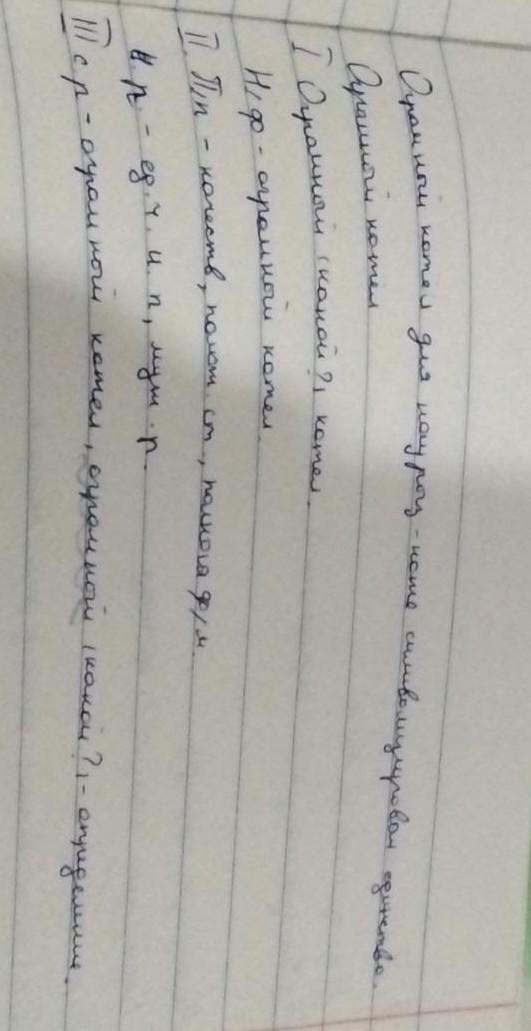 Огромный котел для науроз-коже символизировал единство.
Огромный котел
I Огромный (какой?) котел.
Н/ф - огромный котел.
II. П/п - качеств, полож. ст., полного ф/м.
Н.р. - ед.ч. и.п, муж.р.
III с.р - огромный котел, огромный (какой?) - определение.